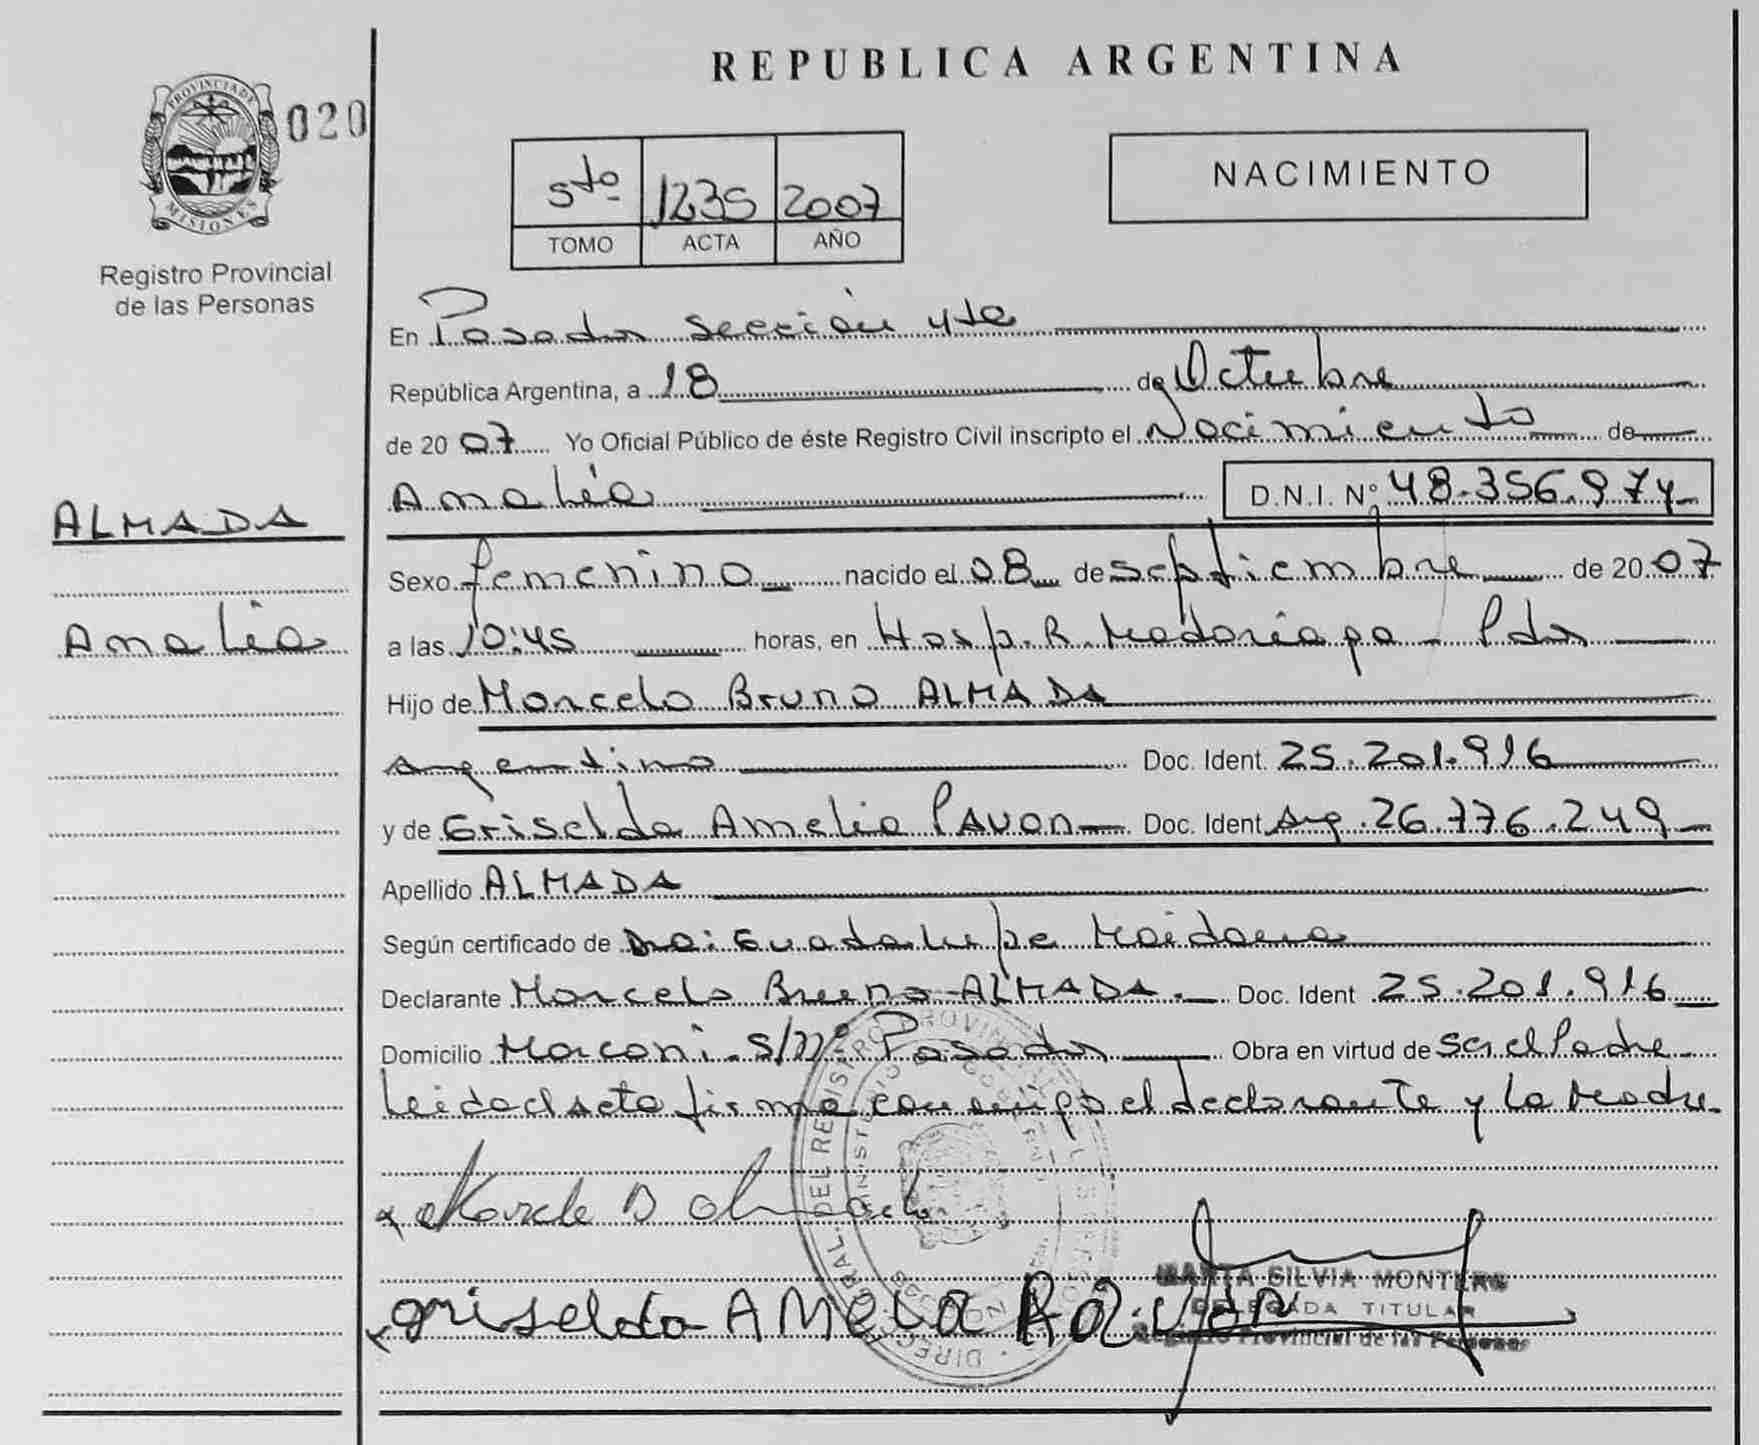 REPUBLICA ARGENTINA
PROVINCIA DE
MISIONES
020
Registro Provincial
de las Personas
5to 1235 2007
TOMO ACTA AÑO
NACIMIENTO
En Posadas Sección 4ta
República Argentina, a 18 de Octubre
de 2007 Yo Oficial Público de éste Registro Civil inscripto el Nacimiento de
Analía D.N.I. Nº 48.356.974
ALMADA
Analía
Sexo femenino nacido el 08 de septiembre de 2007
a las 10:45 horas, en Hosp. R. Madariaga - Pdas
Hijo de Marcelo Bruno ALMADA
argentino Doc. Ident. 25.201.916
y de Griselda Amelia PAVON Doc. Ident Arg. 26.776.249
Apellido ALMADA
Según certificado de Dra: Guadalupe Maidana
Declarante Marcelo Bruno ALMADA.- Doc. Ident 25.201.916
Domicilio Marconi. S/Nº Posadas Obra en virtud de ser el Padre
Leida el acta firma conmigo el declarante y la Madre
Marcelo B Almada
griselda AMelia
MARTA SILVIA MONTERO
DELEGADA TITULAR
Registro Provincial de las Personas